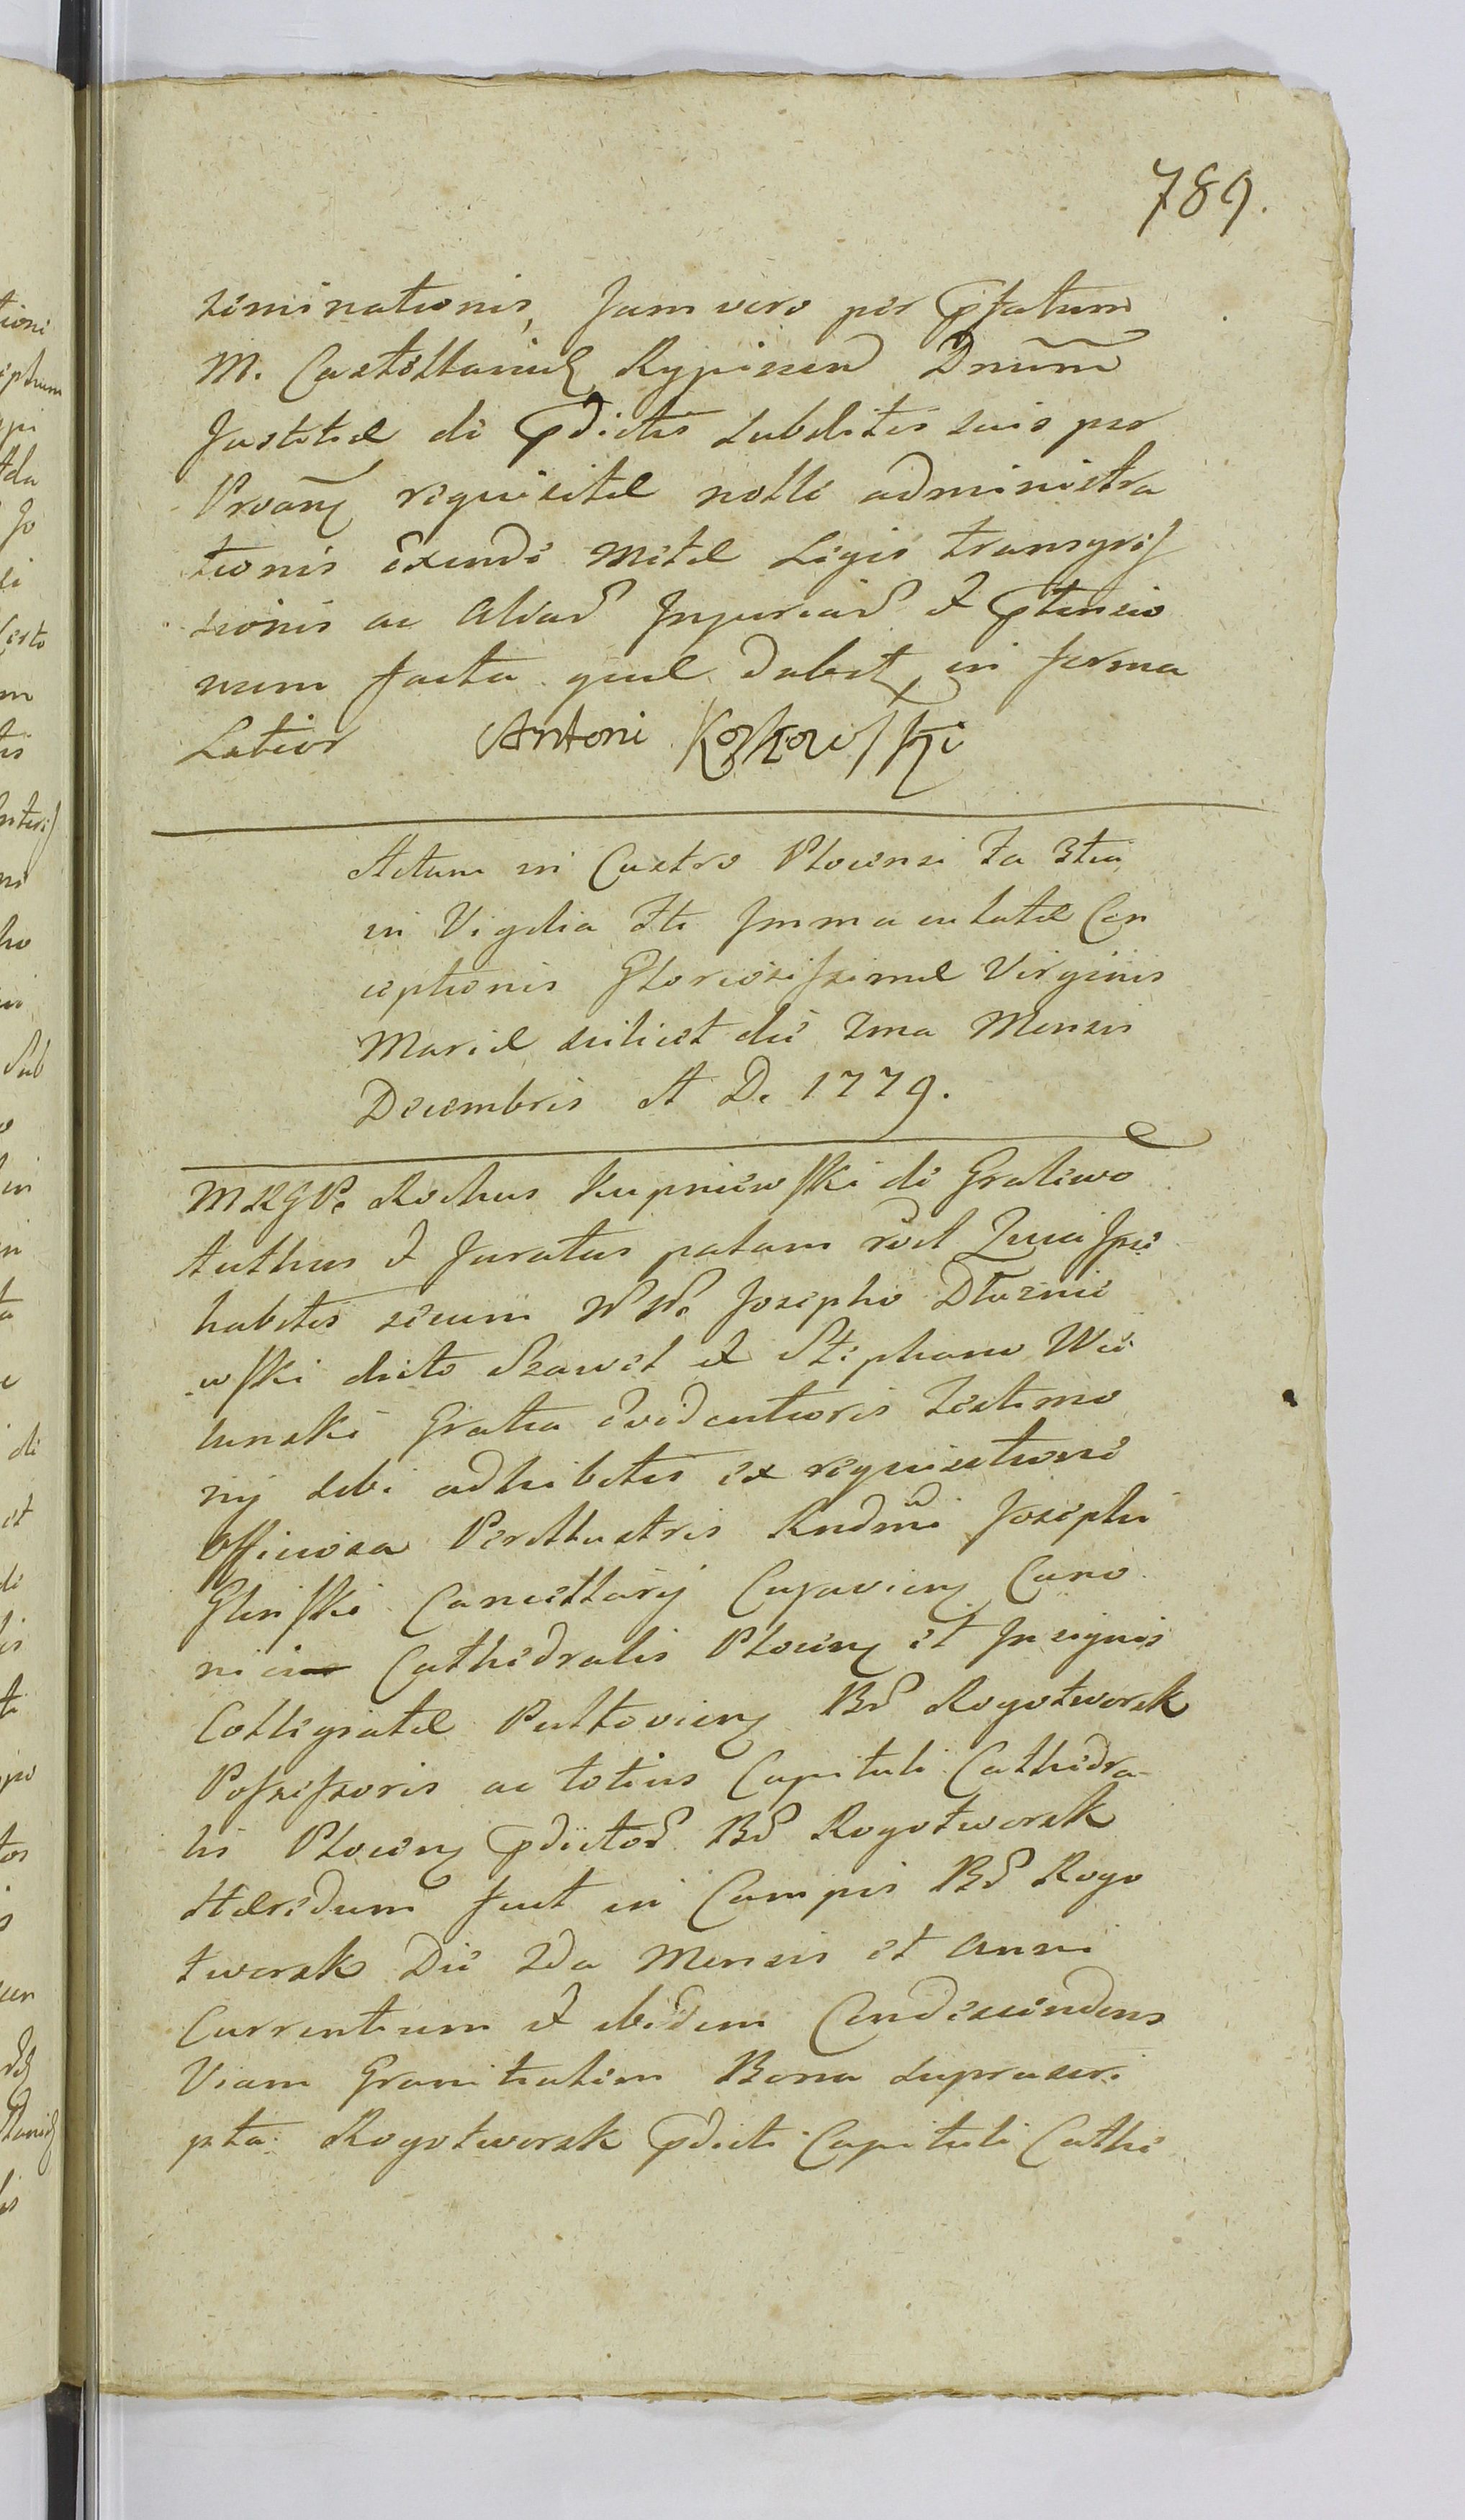 789.
seminationis, Jam vero per Pfatum
M. Castellanum Rypinen Dnum
Justitiæ de Pdictis subditis suis per
Proang requisitæ nolle administra
tionis exinde Metæ Legis transgres
sionis ac aliar Injuriar et Ptensio
num facta quæ debet in forma
Latior Antoni Koskowski
Actum in Castro Plocensi Fa 3tia
in Vigilia Fti Immaculatæ Con
ceptionis Gloriosissimæ Virginis
Mariæ scilicet die 7ma Mensis
Decembris A D. 1779.
Rochus Kupniewski de Graliewo
Authus et Juratus palam
habitis secum NN. Josepho Dłuznie
wski dicto Szawel et Stephano Wie
lunski Gratia evidentioris Testimo
nij sibi adhibitis ex requisitione
Officiosa Perillustris Rndmi Josephi
Glinski Cancellarij Cujavien Cano
nici Cathedralis Plocen et Insignis
Collegiatæ Pultovien Br Rogotworsk
Possessoris ac totius Capituli Cathedra
lis Plocen Pdictor Br Rogotworsk
Hæredum fuit in Campis Br Rogo
tworsk Die 2da Mensis et Anni
Currentium et ibidem Condescendens
Viam Granitialem Bona suprascri
pta Rogotworsk Pdicti Capituli Cathe